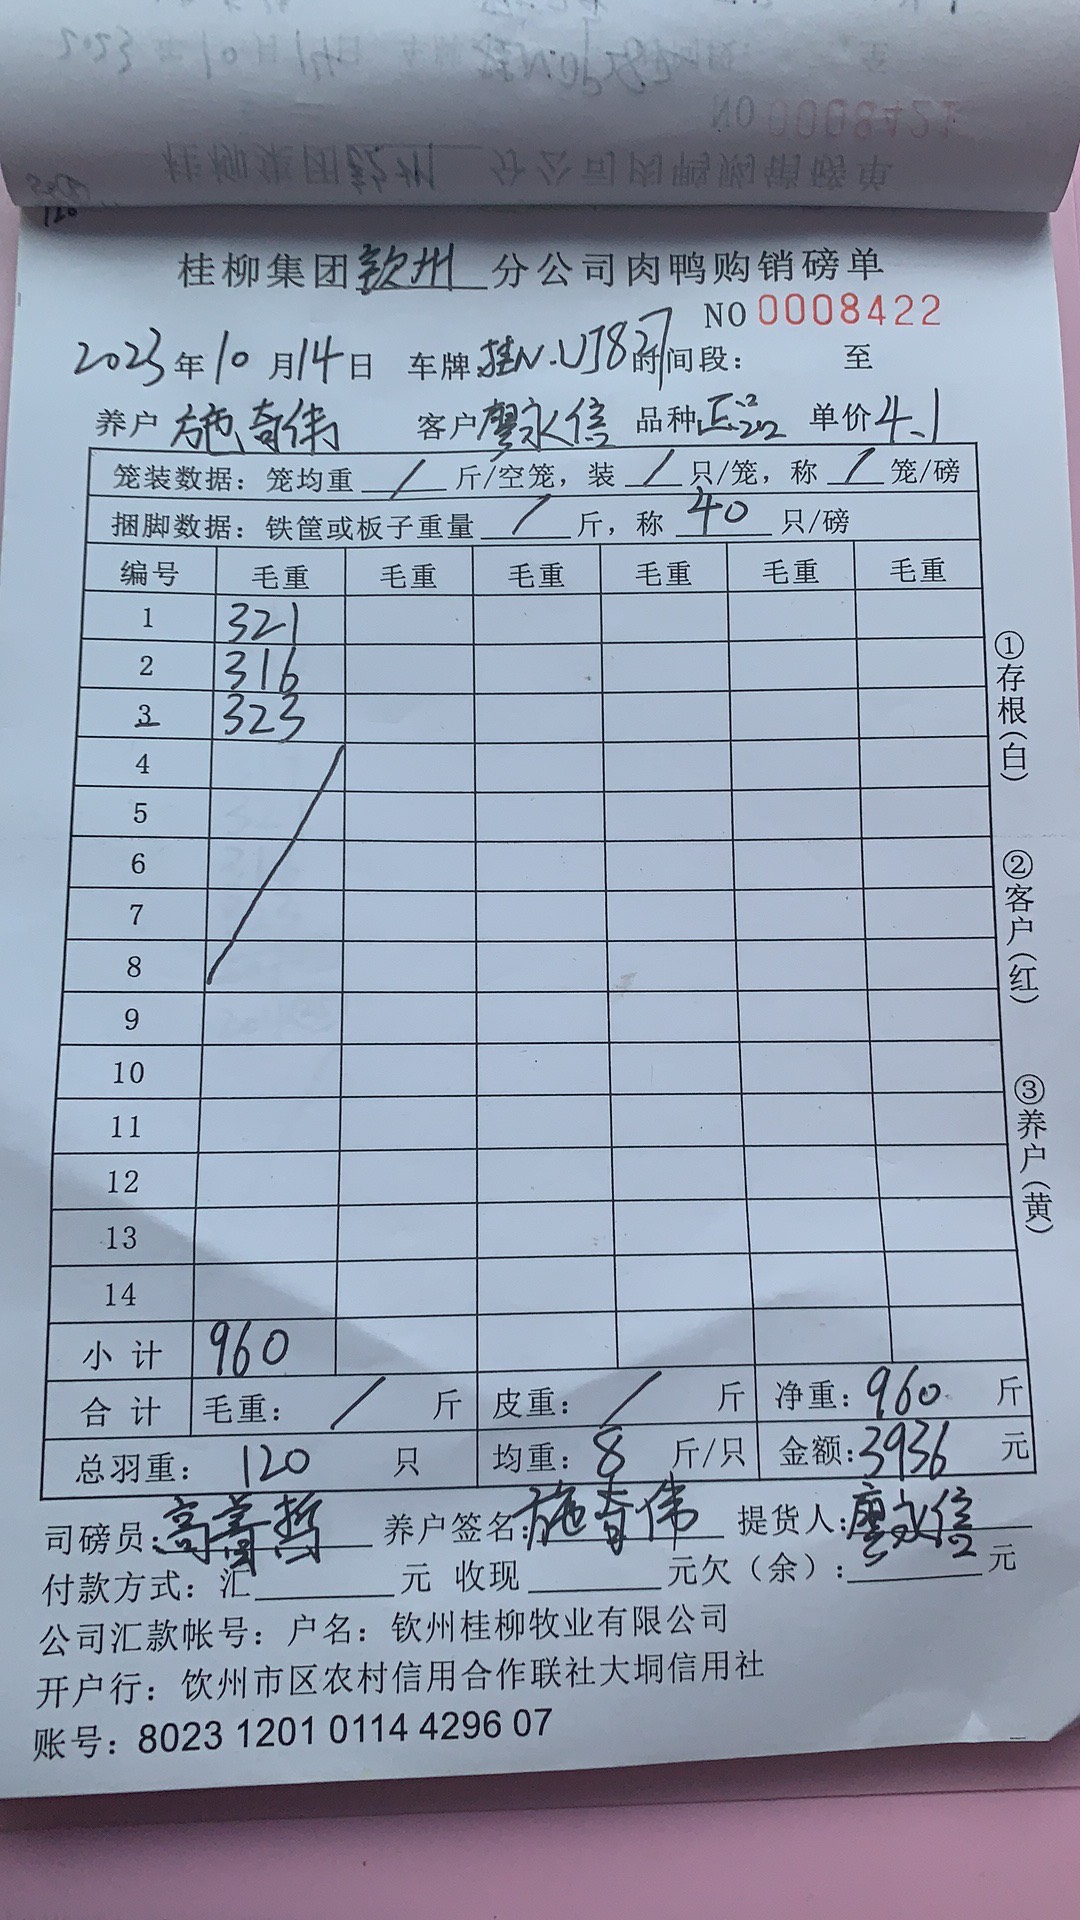 桂柳集团钦州分公司肉鸭购销磅单
NO 0008422
2023年10月14日 车牌:桂N·UJ827 时间段: 至
养户 施奇伟 客户 廖永信 品种 正品 单价 4.1
笼装数据：笼均重 / 斤/空笼，装 / 只/笼，称 / 笼/磅
捆脚数据：铁筐或板子重量 / 斤，称 40 只/磅
编号 毛重 毛重 毛重 毛重 毛重 毛重
1 321
2 316
3 323
4
5
6
7
8
9
10
11
12
13
14
小计 960
合计 毛重： / 斤 皮重： / 斤 净重：960 斤
总羽重： 120 只 均重：8 斤/只 金额:3936 元
①存根(白)
②客户(红)
③养户(黄)
司磅员:高善哲 养户签名:施奇伟 提货人:廖永信
付款方式：汇 元 收现 元欠（余）: 元
公司汇款帐号：户名：钦州桂柳牧业有限公司
开户行：钦州市区农村信用合作联社大垌信用社
账号：8023 1201 0114 4296 07